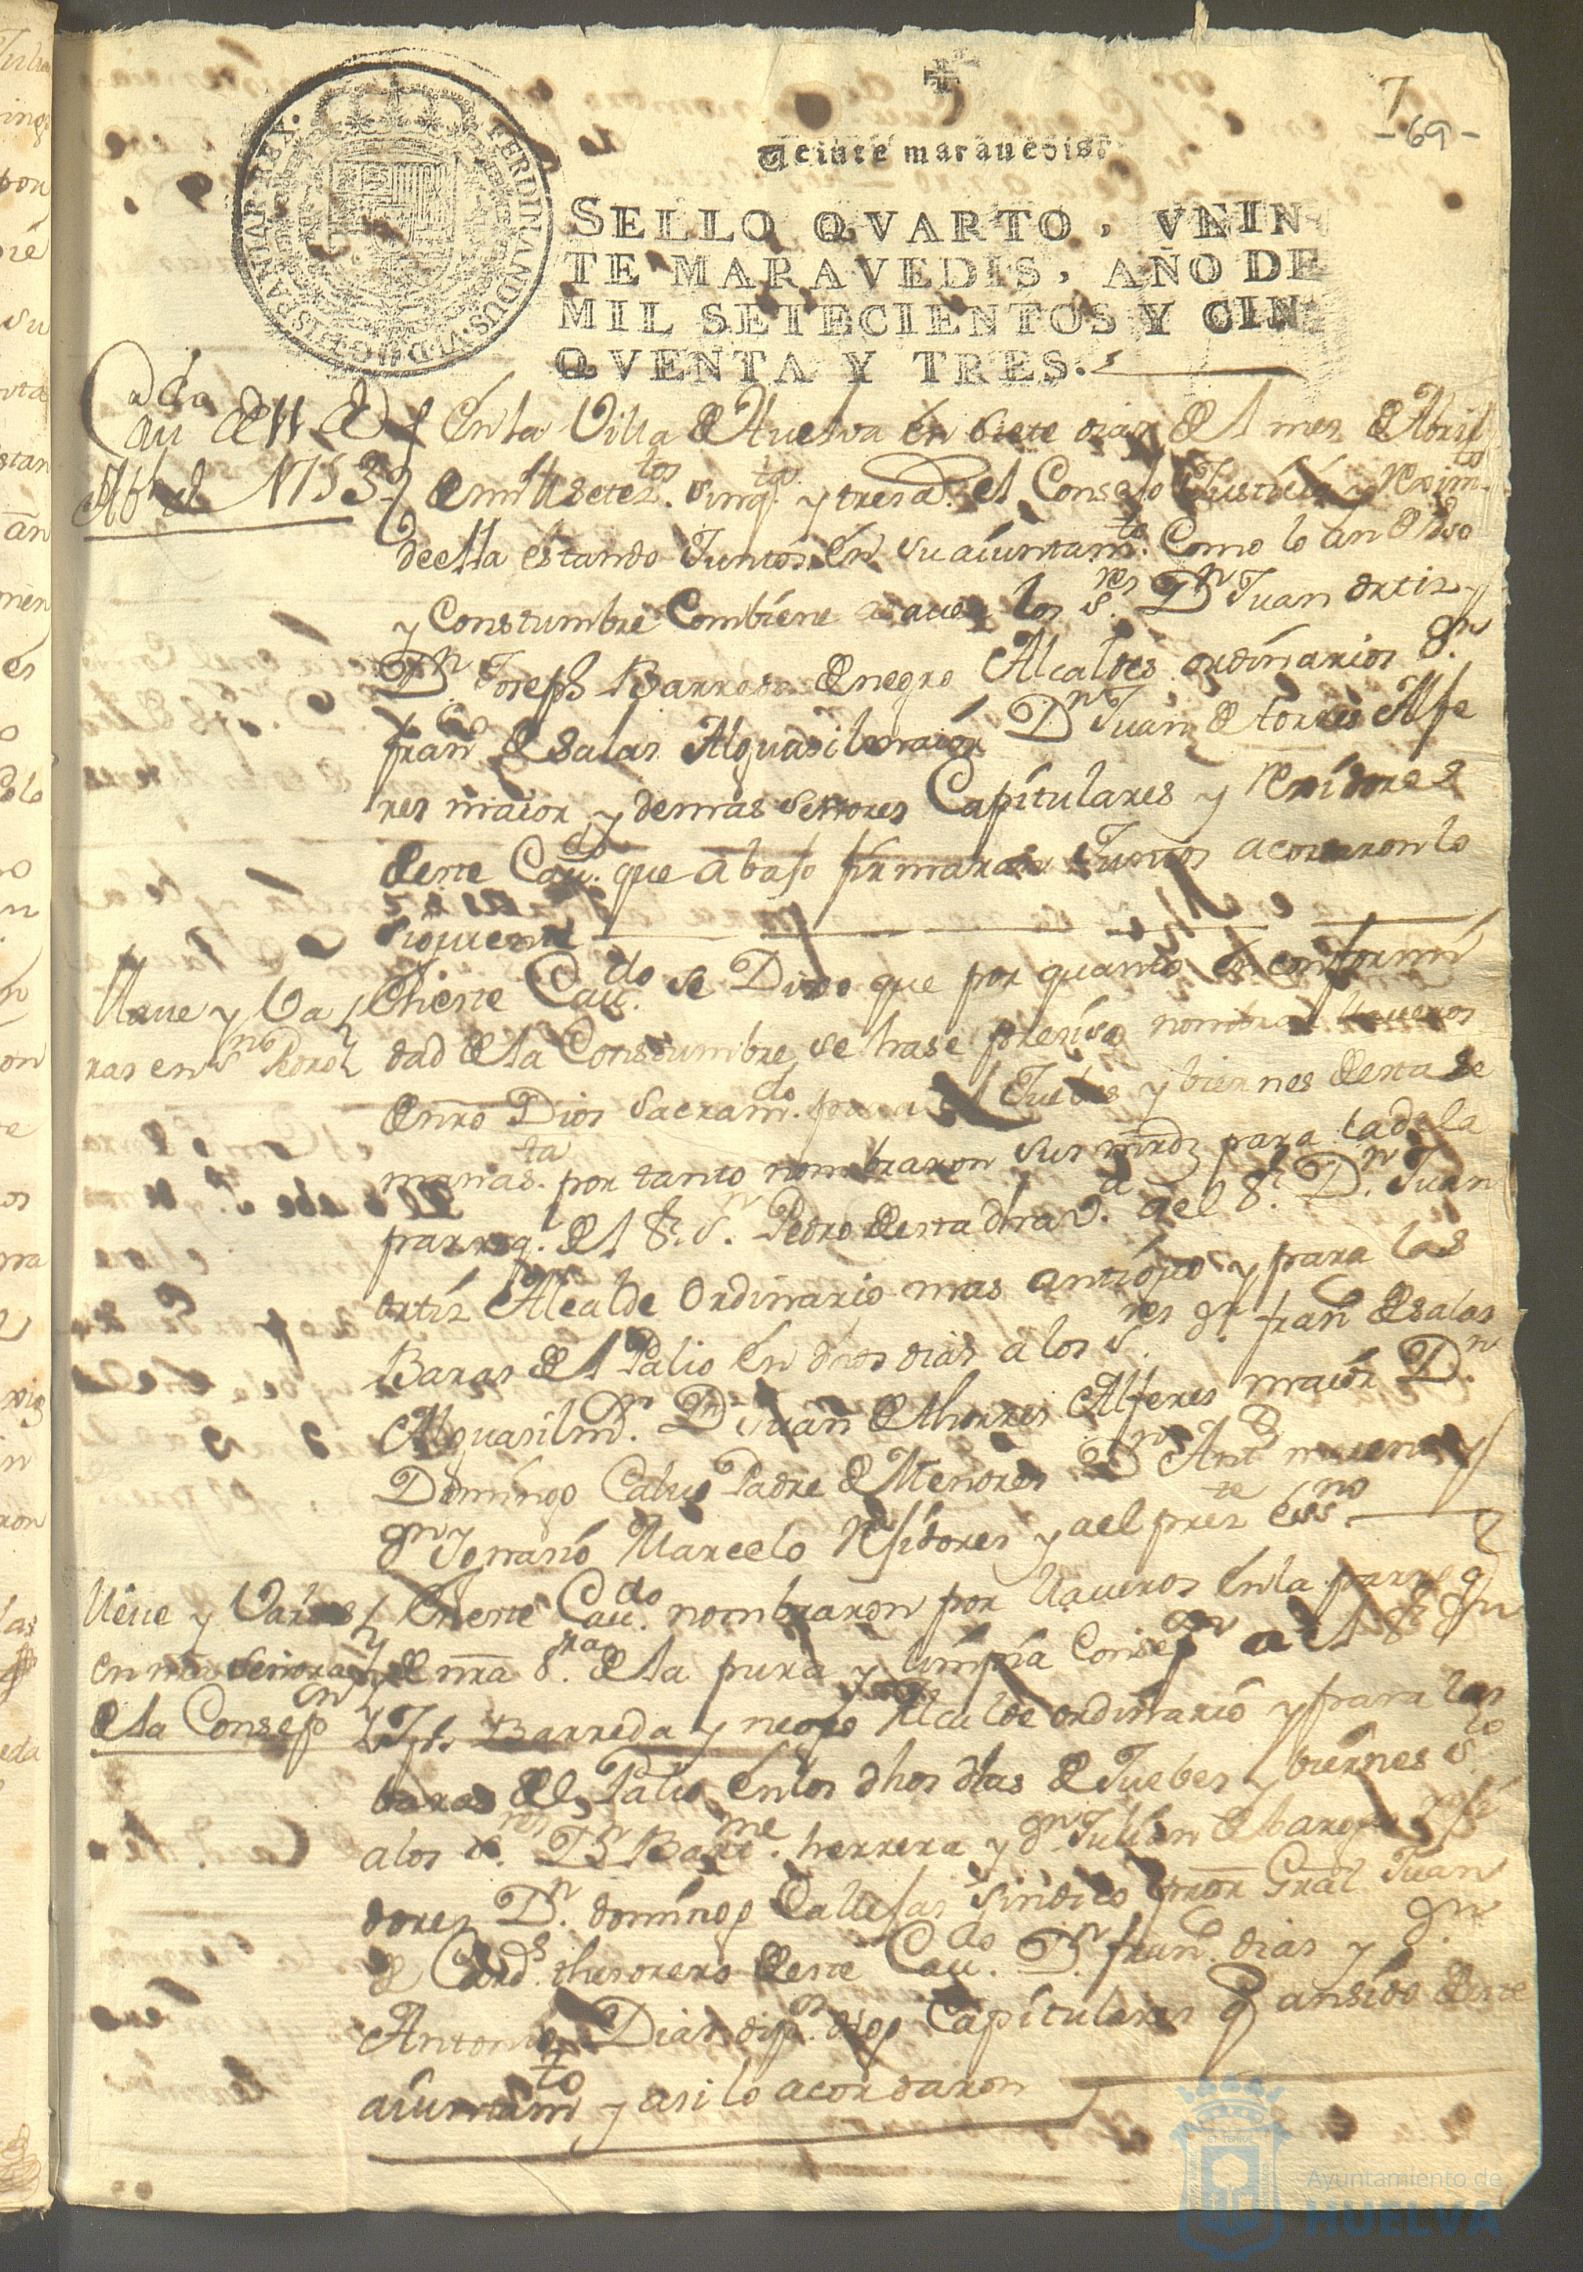 7
-69-
Veinte maravedis.
SELLO QVARTO, VEIN-
TE MARAVEDIS, AÑO DE
MIL SETECIENTOS Y CIN-
QVENTA Y TRES.
FERDINANDUS.VI.D.G.HISPANIAR.REX.
Cau.do de 7 de
Abril 1753
En la Villa de Huelva en siete dias del mes de Abril
de mill setez.tos sinq.ta y tres a.s el Consejo Justicia y Rexim.to
de ella estando Juntos en su aiuntam.to Como lo an de Vso
y Constumbre Combiene a sauer los s.res D.n Juan ortiz y
D.n Joseph Barreda negro Alcaldes ordinarios D.n
fran.co de Salas Alguasil maior D.n Juan de torres Alfe
res maior y demas señores Capitulares y Rexidores
deste Cau.do que abajo firmaran Juntos acordaron lo
siguiente
Llaue y Va
ras en s.n Pedro
En este Cau.do se Dixo que por quanto en conformi
dad de la Constumbre se hase presiso nombrar llaueros
de nro Dios Sacram.do para el Juebes y biernes de esta se
mana s.ta por tanto nombraron sus mrds para la de la
parroq. del S.r S.n Pedro de esta dha v.a a el S.r D.n Juan
ortiz Alcalde Ordinario mas antiguo y para las
Baras del Palio en dhos dias a los s.res D.n fran.co de salas
Alguasil m.r D.n Juan de thorres Alferes maior D.n
Domingo Calvo Padre de Menores D.n Ant.o y
D.n Ignasio Marcelo Rexidores y a el pres.te ess.no
Llaue y Varas
en nra señora
de la Consep.on
En este Cau.do nombraron por llaueros en la parroq.
de nra S.ra de la pura y limpia Consep.on a el S.r D.n
Jph. Barreda y negro Alcalde ordinario y para las
baras del Palio en los dhos dias de Juebes y biernes s.to
a los s.res D.n Bart.me herrera y D.n Julian de Rexi
dores D.n domingo Callejas Sindico Pror Gral Juan
de Card.s thesorero deste Cau.do D.n fran.co dias y D.n
Antonio Dias Capitulares q an sido deste
aiuntam.to y asi lo acordaron
Ayuntamiento de
HUELVA